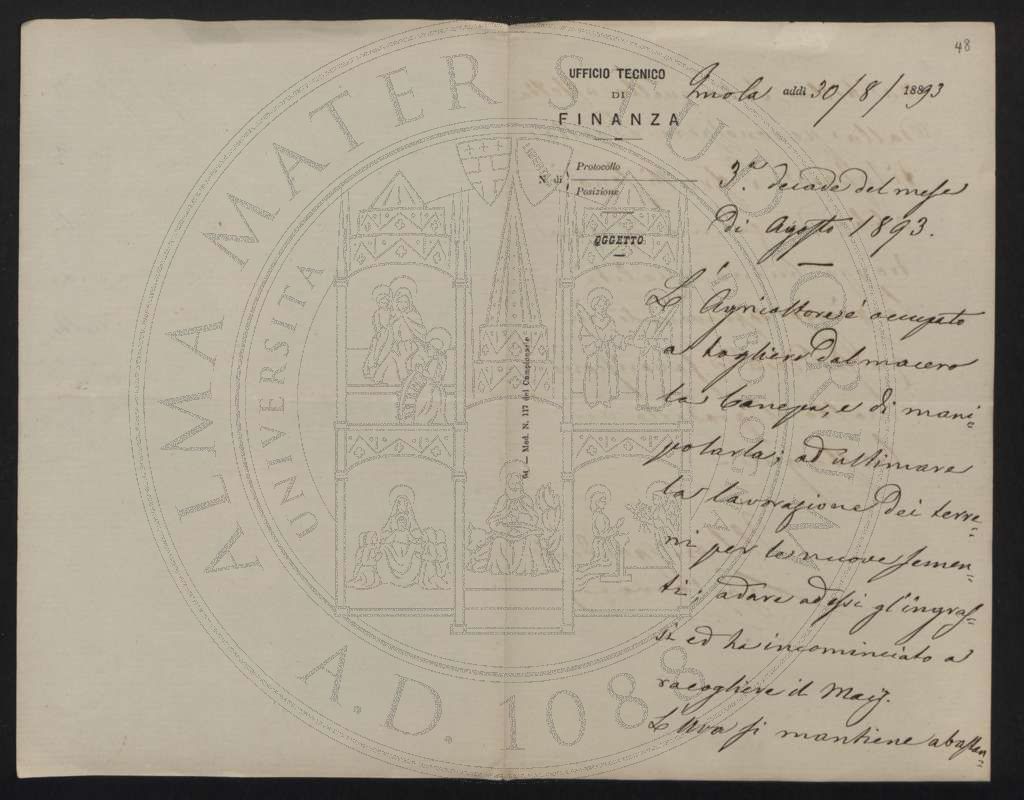 48
UFFICIO TECNICO
DI
FINANZA
Imola addì 30/8/1893
N. di
Protocollo
Posizione
OGGETTO
3.a decade del mese
di Agosto 1893.
L'Agricoltore é occupato
a togliere dal macero
la Canepa, e di mani=
polarla; ad ultimare
la lavorazione dei terre=
ni per le nuove semen=
ti; a dare ad essi gl'ingras=
si ed ha incominciato a
racogliere il Maiz.
L'Uva si mantiene abastan=
64 — Mod. N. 117 del Campionario
ALMA MATER STUDIORUM
UNIVERSITÀ DI BOLOGNA
A.D. 1088